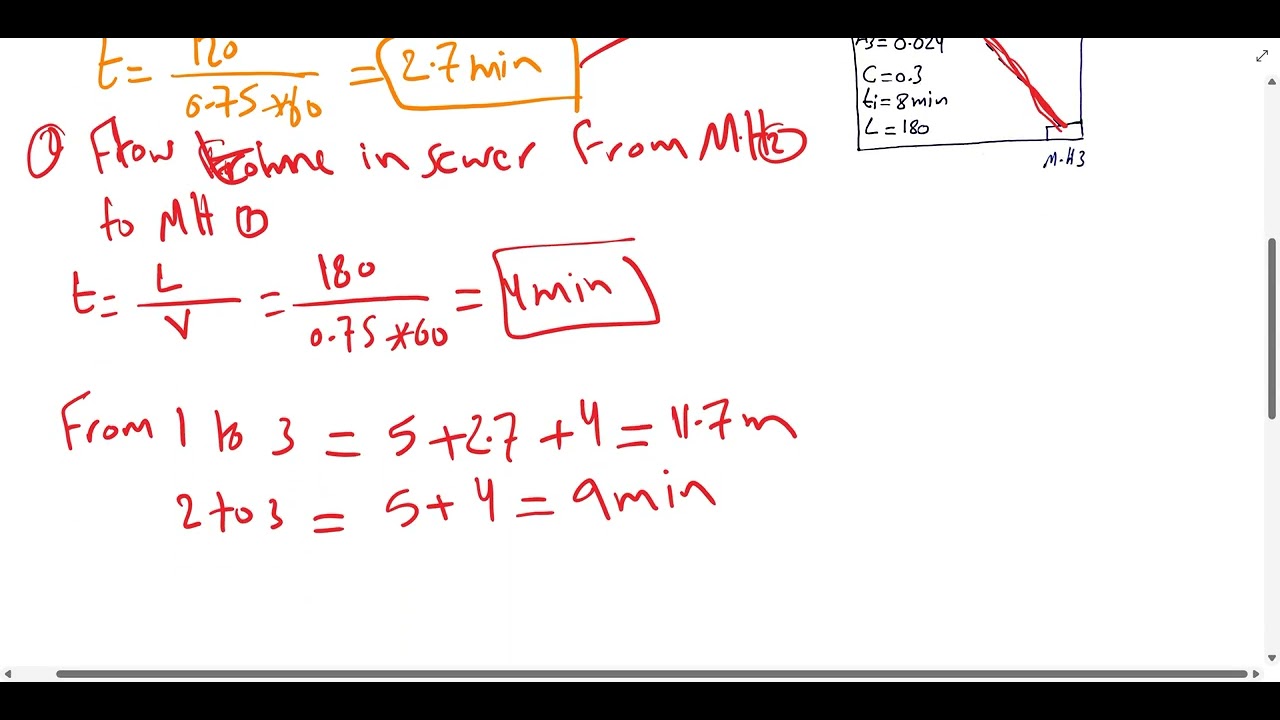 t = 120 / 0.75*60 = 2.7 min
① Flow time in sewer From M.H②
to MH ①
t = L / V = 180 / 0.75*60 = 4min
From 1 to 3 = 5+2.7+4 = 11.7m
2 to 3 = 5+4 = 9min
A3=0.024
C=0.3
ti=8min
L=180
M.H3